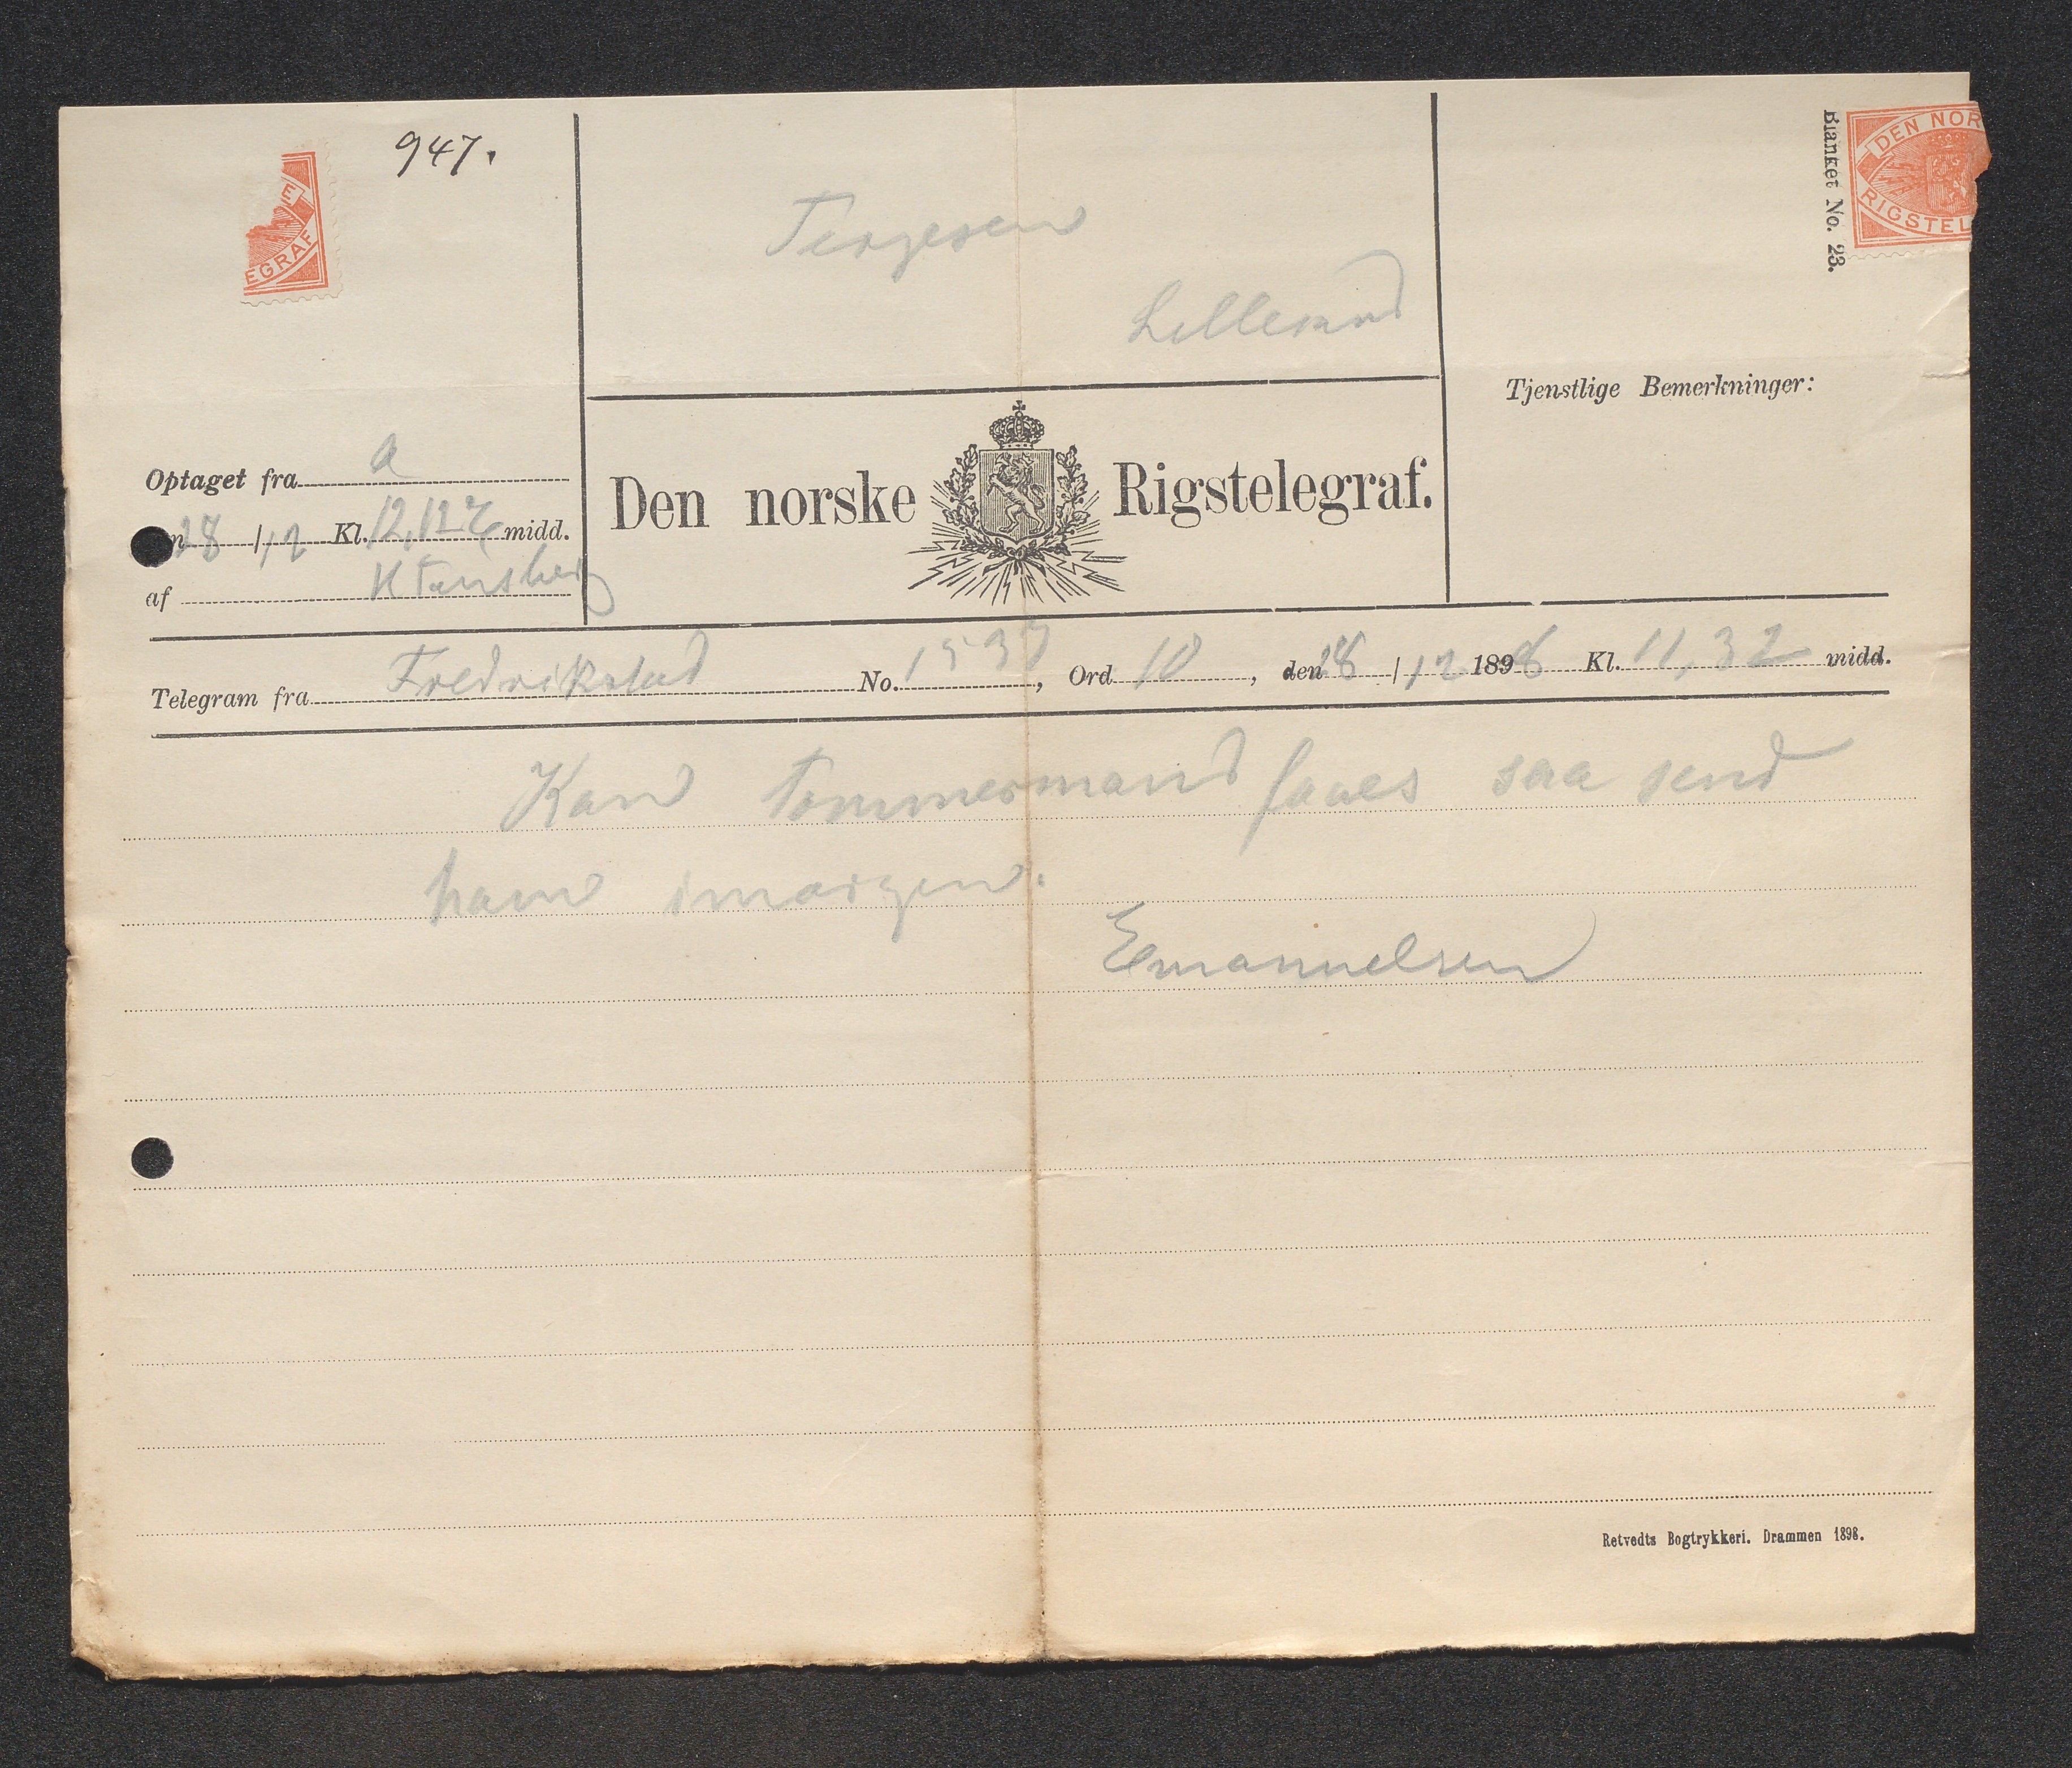 947.
Tergesen
Lillesand
Blanket No. 23.
DEN NOR
RIGSTEL
E
EGRAF
Tjenstlige Bemerkninger:
Optaget fra a
28 /12 Kl. 12,12 midd.
af
Den norske Rigstelegraf.
Telegram fra Fredrikstad No. 1537, Ord 10, den 28 /12 1898 Kl. 11,32 midd.
Kan Tømmermand faaes saa send
ham imorgen.
Emanuelsen
Retvedts Bogtrykkeri. Drammen 1898.